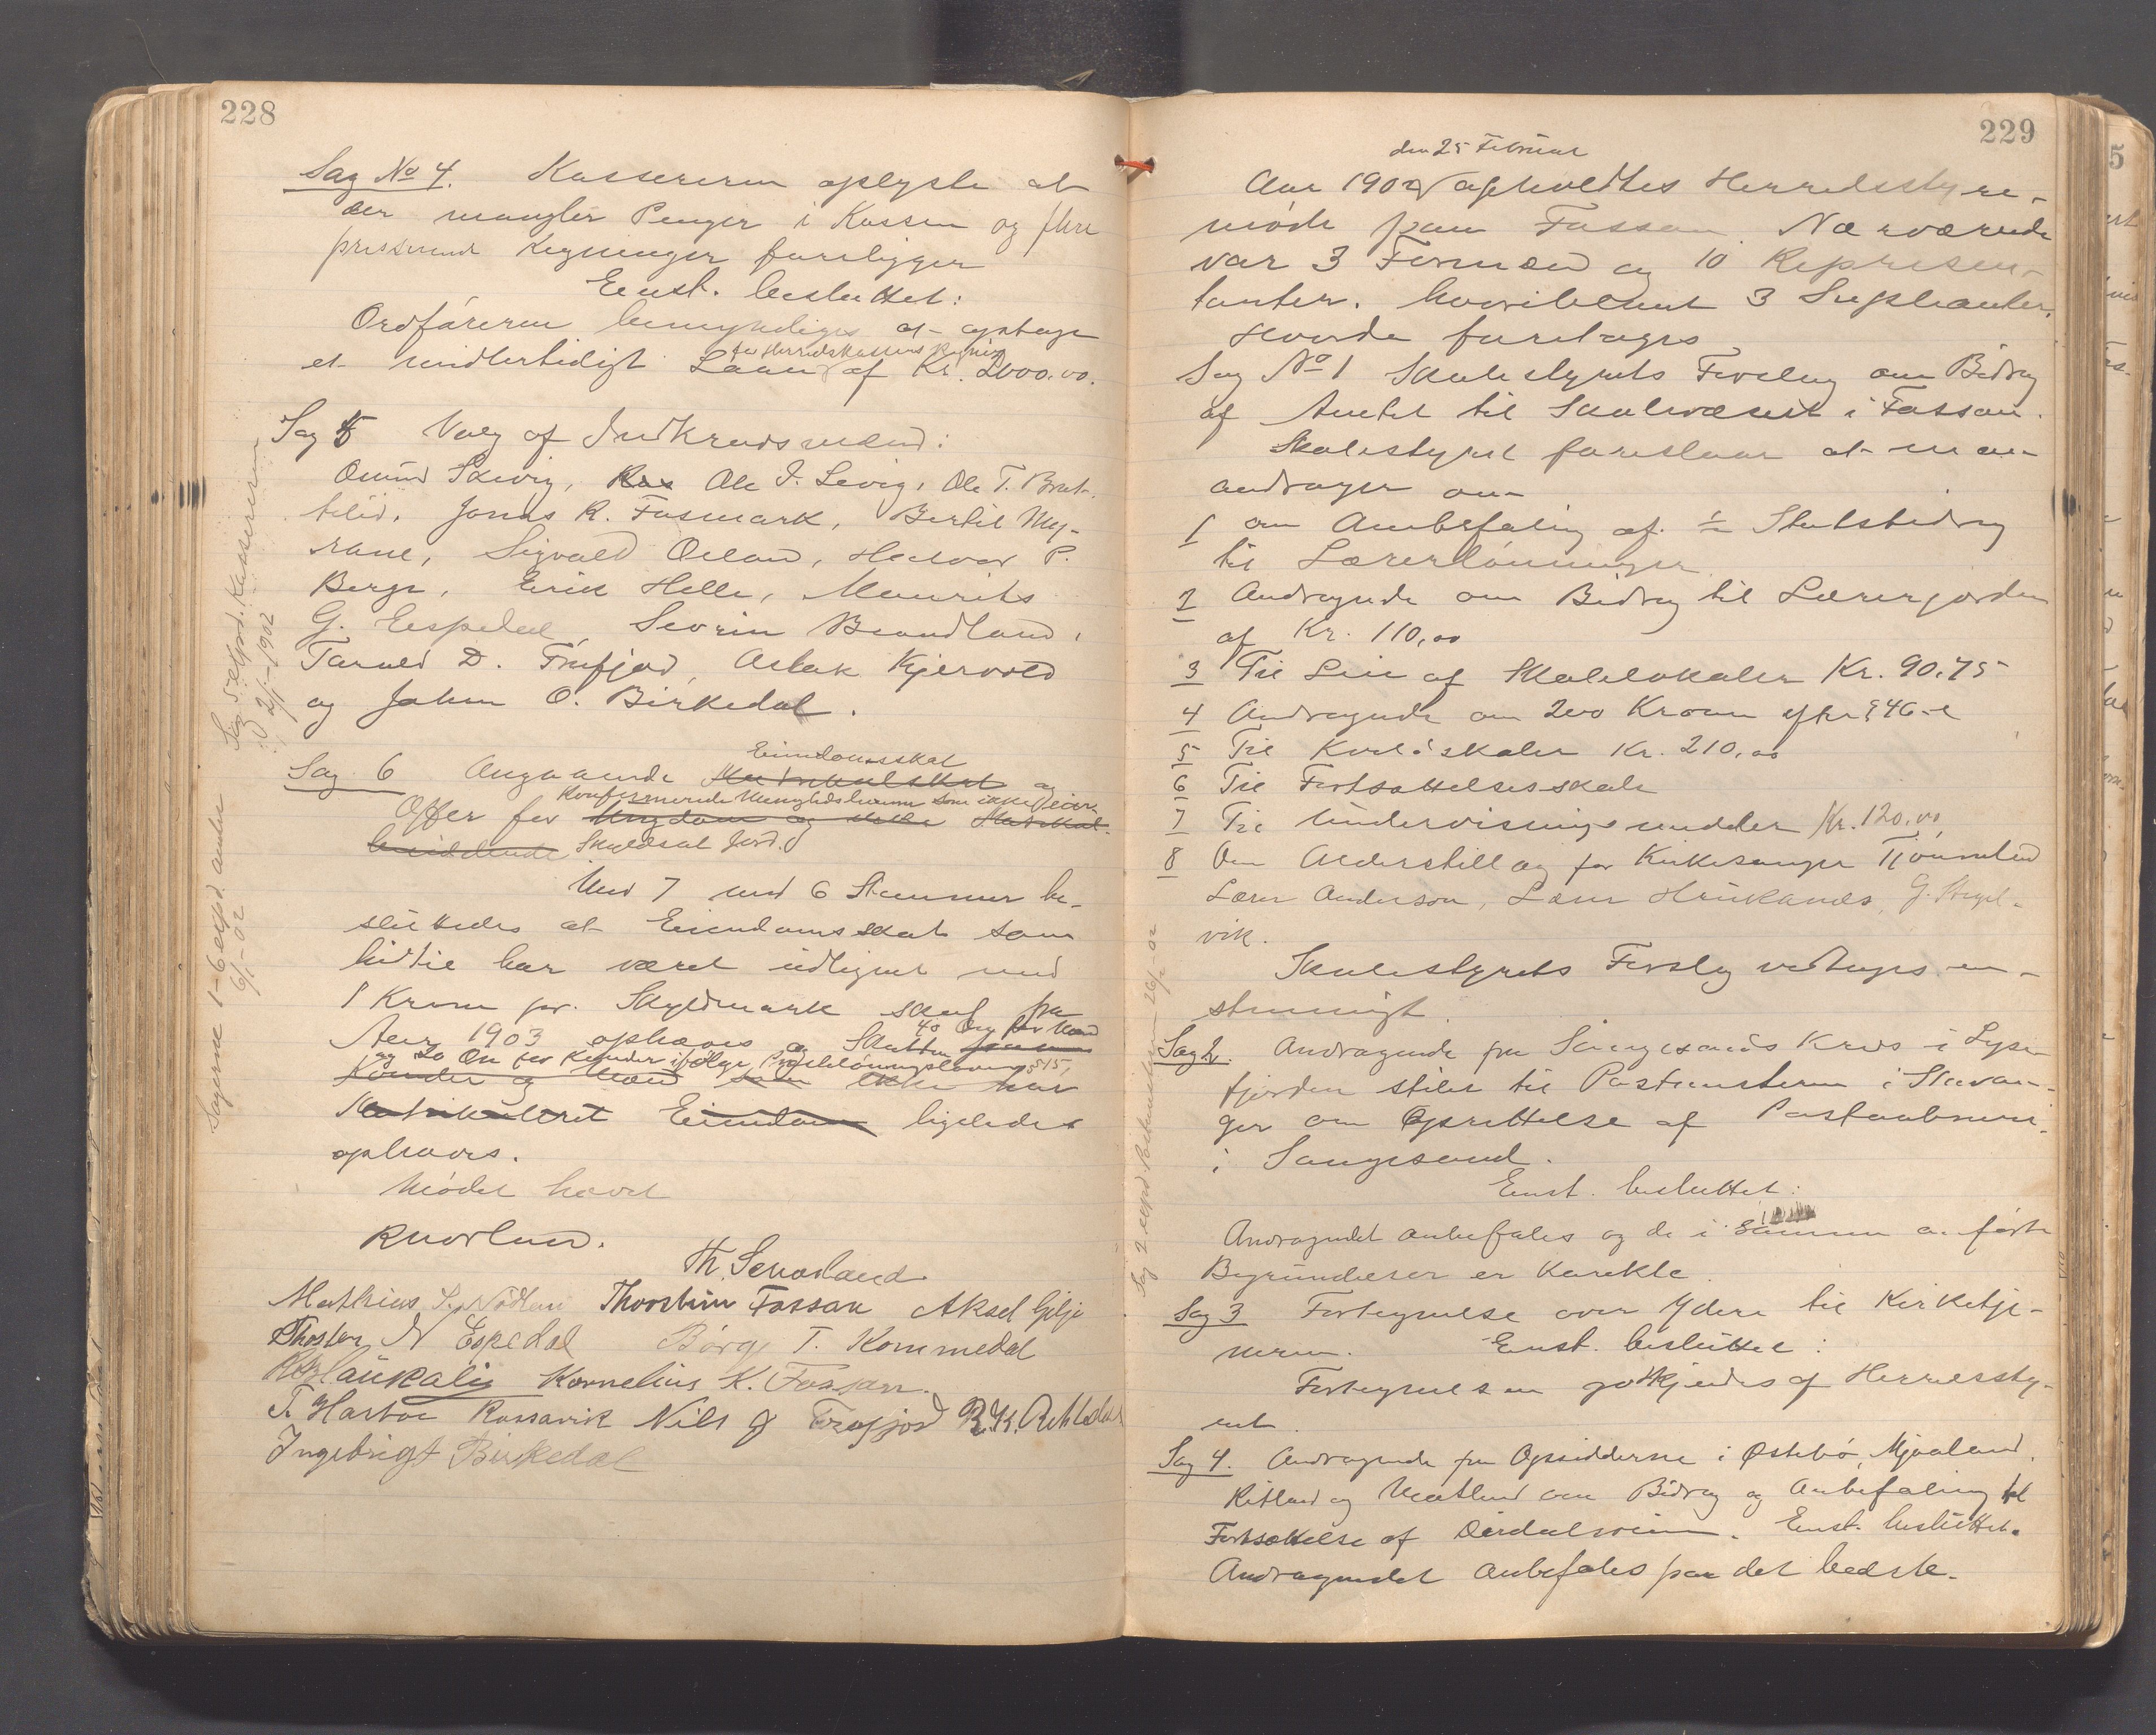 228
Sag No 4. Kassereren oplyste at
der mangler Penger i Kassen og flere
presserende Regninger foreligger
Enst. besluttet:
Ordføreren bemyndiges at optage
for Herredskassens Regning
et midlertidigt Laan af Kr. 2000.00.
Sag 5 Valg af Indkredsmænd:
Omund Skevig, Ole I. Levig, Ole T. Brat-
telid, Jonas R. Fosmark, Bertil My-
rane, Sigvald Oeland, Halvor P.
Berge, Eirik Helle, Maurits
G. Eespedal, Sevrin Brandland,
Tarald D. Frafjord, Aslak Kjervold
og Johan O. Birkedal.
Eiendomsskat
Sag 6 Angaaende Matrikulskat og
Konfirmerede Menighedslemmer som ikke eier
Offer for Ungdom og ikke Matrikul-
besiddende Skyldsat Jord.
Med 7 mod 6 Stemmer be-
sluttedes at Eiendomsskat som
hidtil har været udlignet med
1 Krone pr. Skyldmark skal fra
40 Øre for Mænd
Aar 1903 ophæves og Skatten
og 20 Øre for Kvinder ifølge Presteløningsloven §15,
Kvinder og Mænd som ikke har
Matrikuleret Eiendom ligeledes
ophæves.
Mødet hævet
R Norland.
Th. Senorland
Mathias S. Nødland Thorstein Fossan Aksel Gilje
Thoster N Espedal Børge T. Kommedal
Haukalig Kornelius K. Fossan.
T. Hasboe Rossavik Nils G Frafjord R. K. Rettedal
Ingebrigt Birkedal
Sagerne 1-6 expd. amtet
6/1-02
Sag 5 expd. Kassereren
2/1-1902
229
den 25 Februar
Aar 1902 afholdtes Herredsstyre-
møde paa Fossan. Nærværende
var 3 Formænd og 10 Represen-
tanter. hvoriblant 3 Suppleanter.
Hvorda foretages
Sag No 1 Skolestyrets Forslag om Bidrag
af Amtet til Skolevæsnet i Fossan.
Skolestyret foreslaar at man
andrager om
1 om Anbefaling af Statsbidrag
til Lærerlønninger
2 Andragende om Bidrag til Lærerjorden
af Kr. 110,00
3 Til Leie af Skolelokaler Kr. 90,75
4 Andragende om 200 Kroner efter § 46-e
5 Til Kveldskoler Kr. 210,00
6 Til Fortsættelsesskole
7 Til Undervisningsmidler Kr. 120,00
8 Om Alderstillæg for Kirkesanger Tjomslid
Lærer Anderson, Lærer Haukanes, G. Stegel-
vik.
Skolestyrets Forslag vedtages en-
stemmigt.
Sag 2. Andragende fra Songesands Kreds i Lyse-
fjorden stilet til Postmesteren i Stavan-
ger om Oprettelse af Postaabneri
i Songesand.
Enst. besluttet:
Andragendet anbefales og de i samme anførte
Begrundelser er korekte.
Sag 3 Fortegnelse over Ydere til Kirketje-
neren. Enst. besluttet:
Fortegnelsen godkjendes af Herredssty-
ret.
Sag 4. Andragende fra Opsidderne i Østebø, Mjaaland,
Ritland og Maatland om Bidrag og Anbefaling til
Fortsættelse af Dirdalsveien. Enst. besluttet.
Andragendet anbefales paa det bedste.
Sag 2 expd. Postmesteren 26/2-02